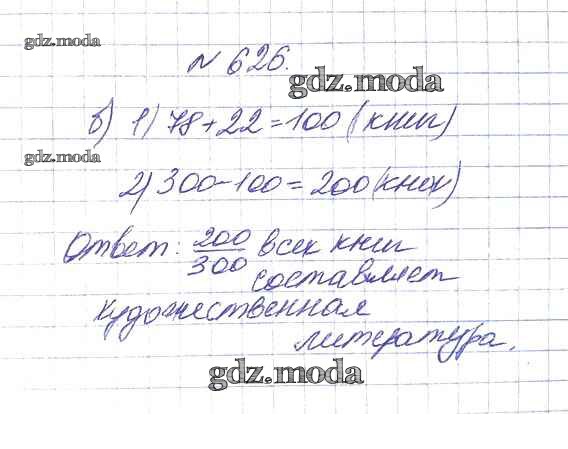 gdz.moda
№ 626.
gdz.moda
б) 1) 78 + 22 = 100 (книг)
gdz.moda
2) 300 - 100 = 200 (книг)
Ответ: 200/300 всех книг
составляет
художественная
литература.
gdz.moda